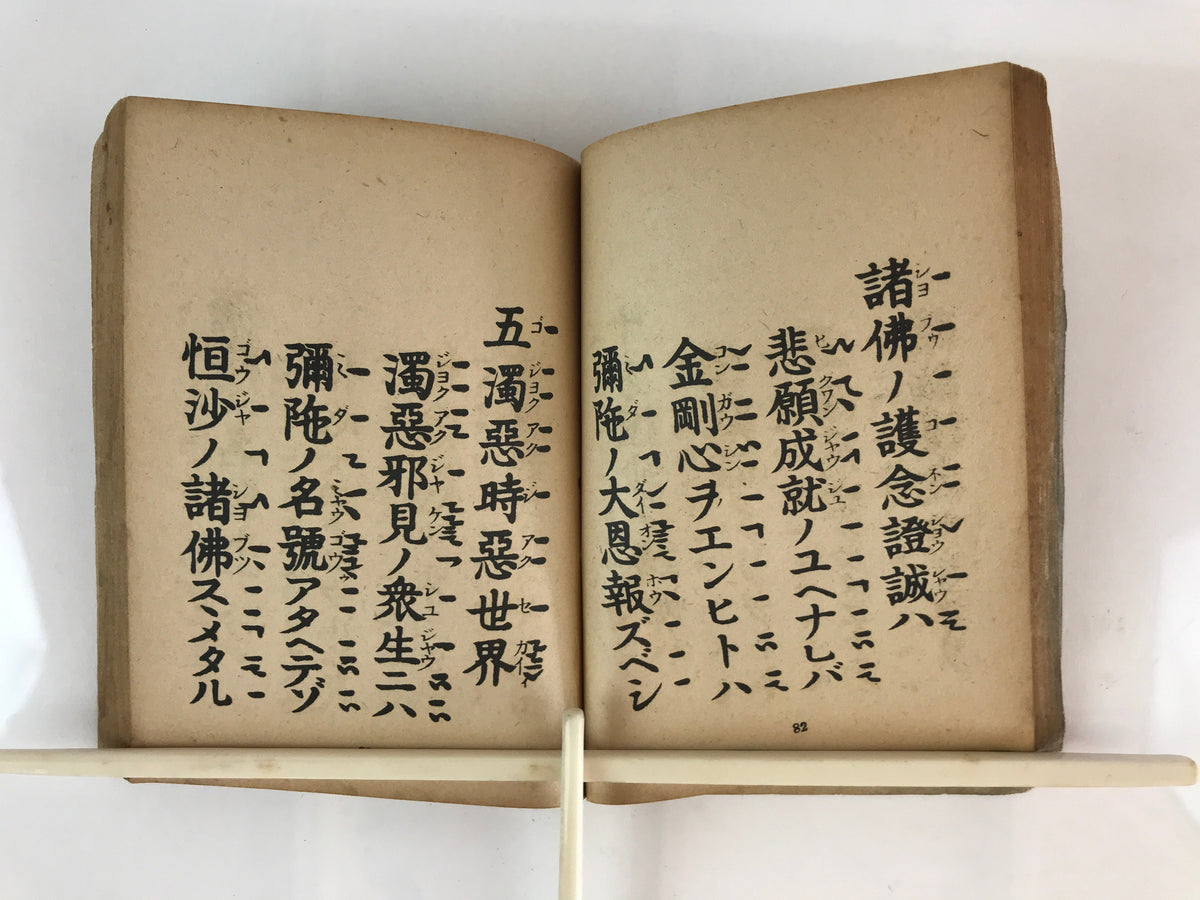 諸佛ノ護念證誠ハ
悲願成就ノユヘナレバ
金剛心ヲエンヒトハ
彌陁ノ大恩報ズベシ
82
五濁惡時惡世界
濁惡邪見ノ衆生ニハ
彌陁ノ名號アタヘテゾ
恒沙ノ諸佛スヽメタル